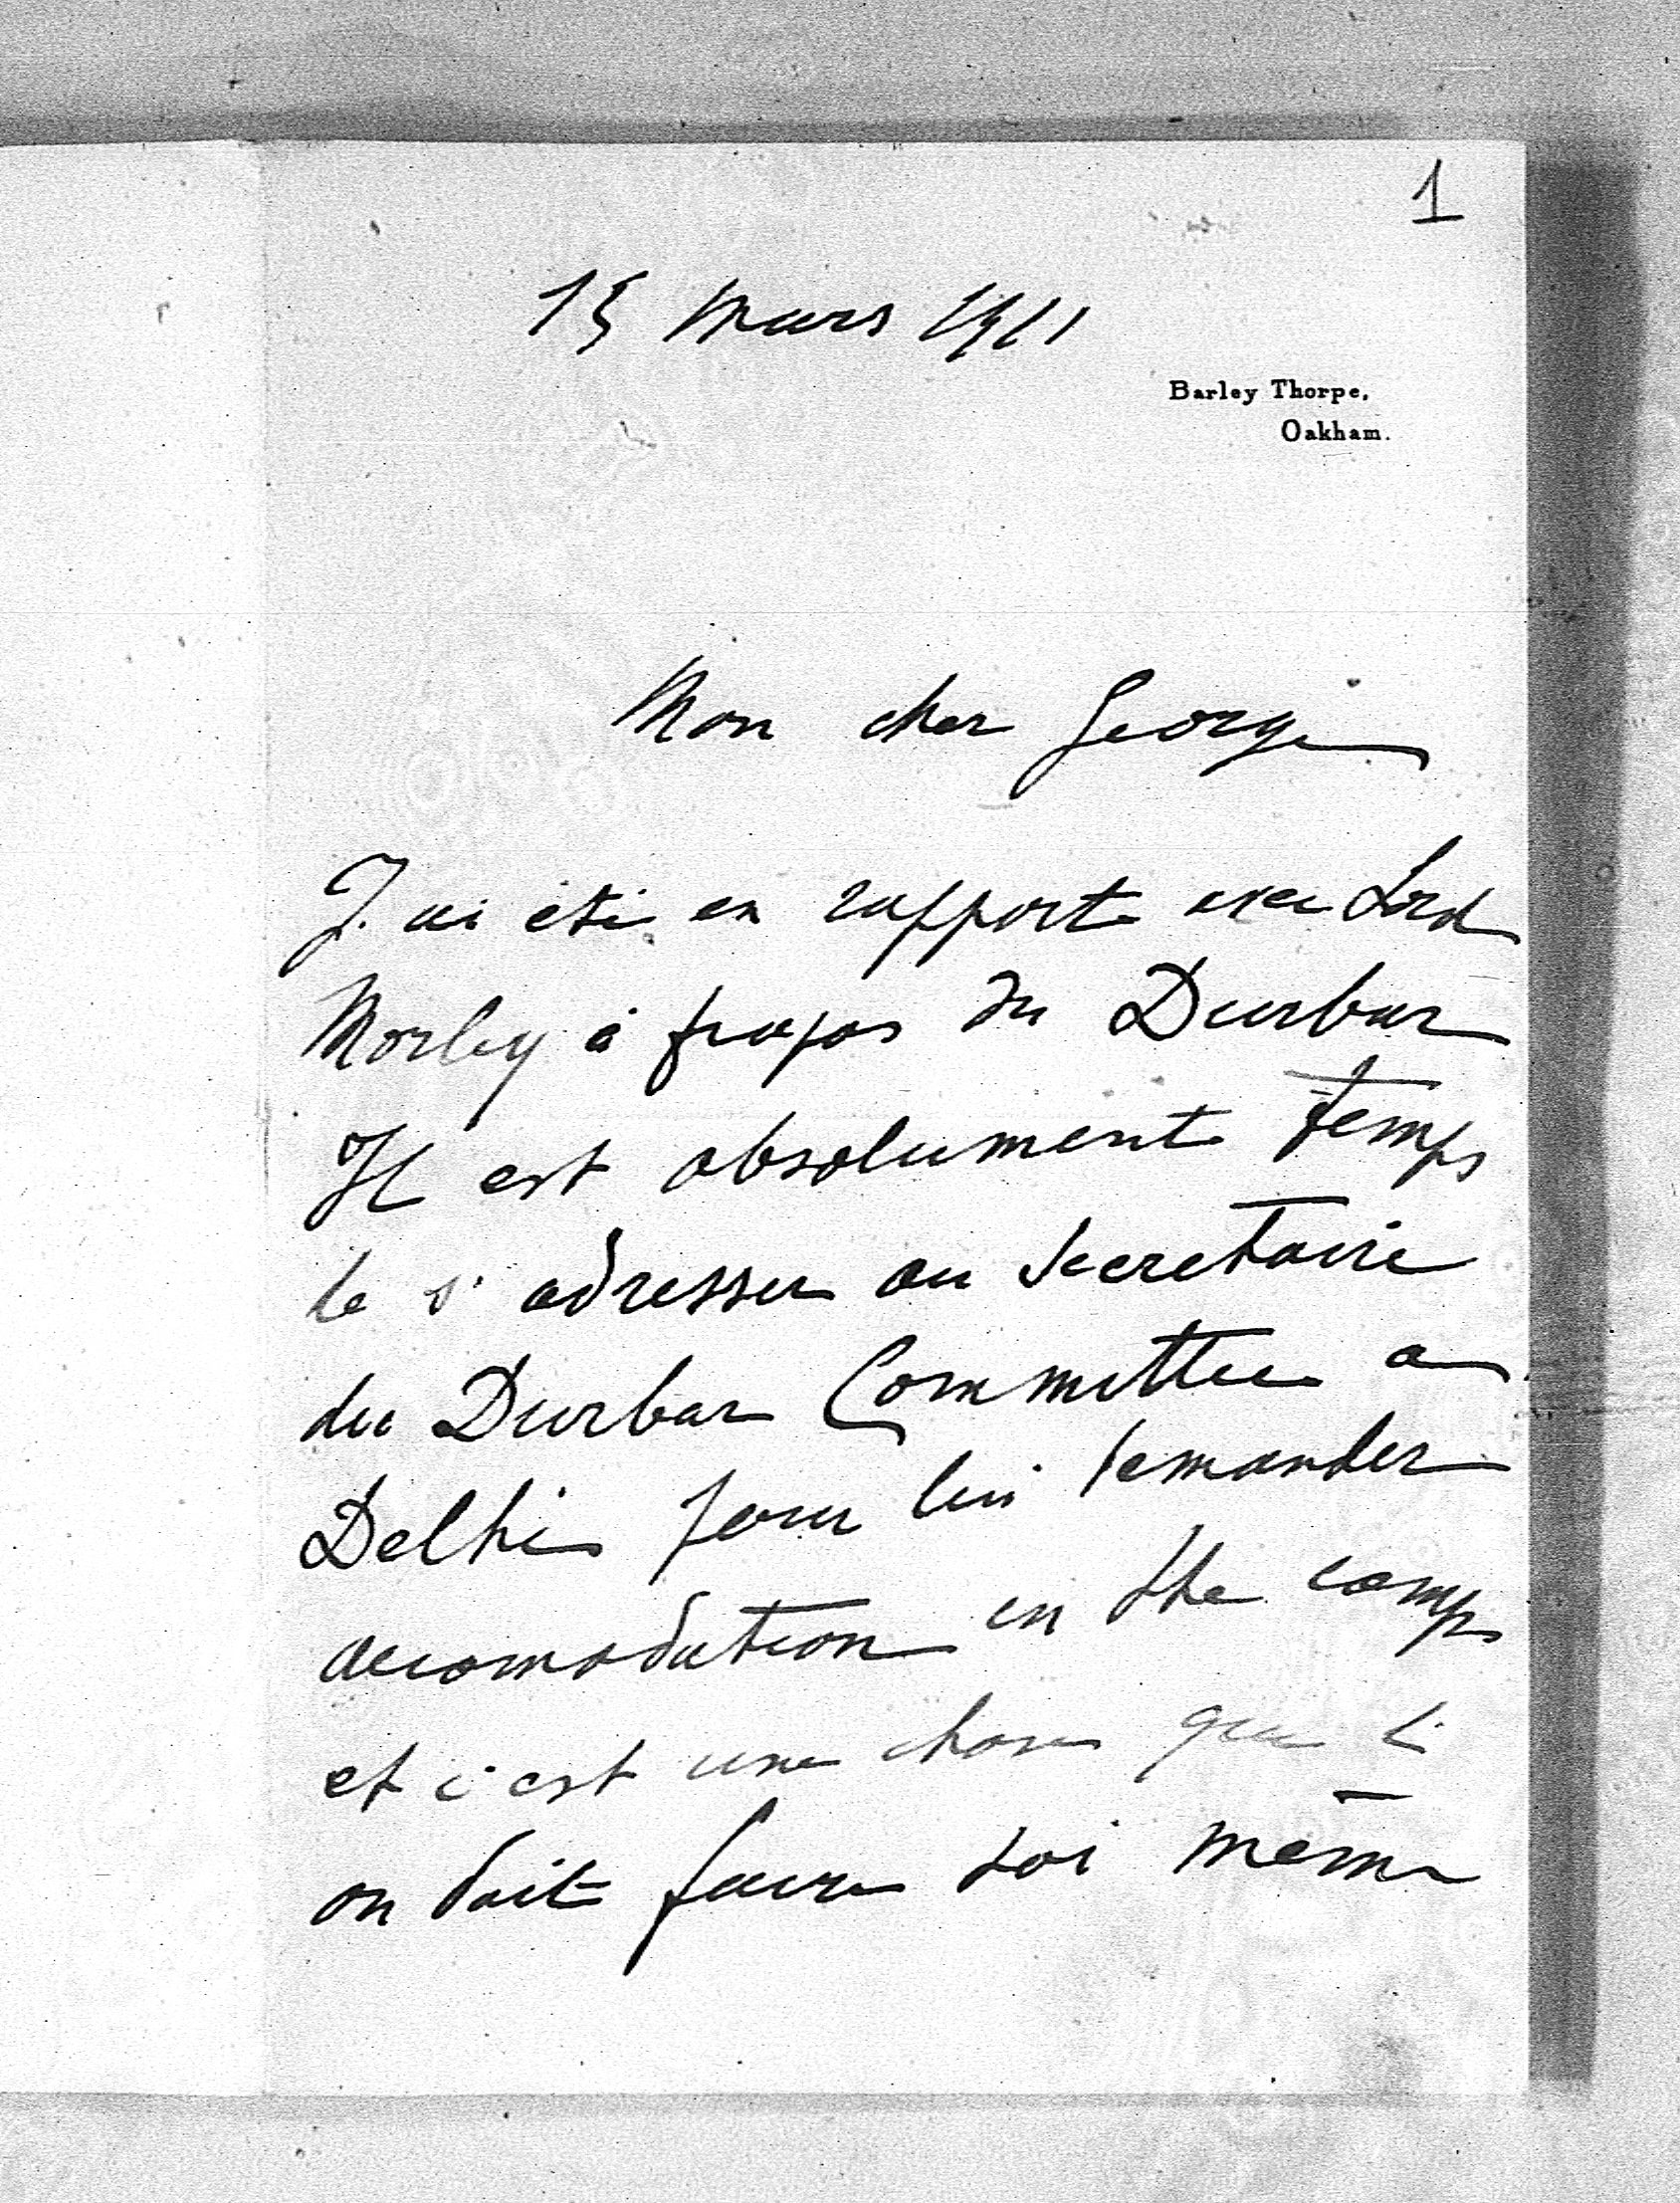 1
15 mars 1911
Barley Thorpe,
Oakham.
Mon cher George
J'ai été en rapport avec Lord
Morley à propos du Durbar
Il est absolument temps
de s'adresser au Secretaire
du Durbar Committee a
Delhi pour lui demander
accomodation in the camp
et c'est une chose que l'
on doit faire soi même